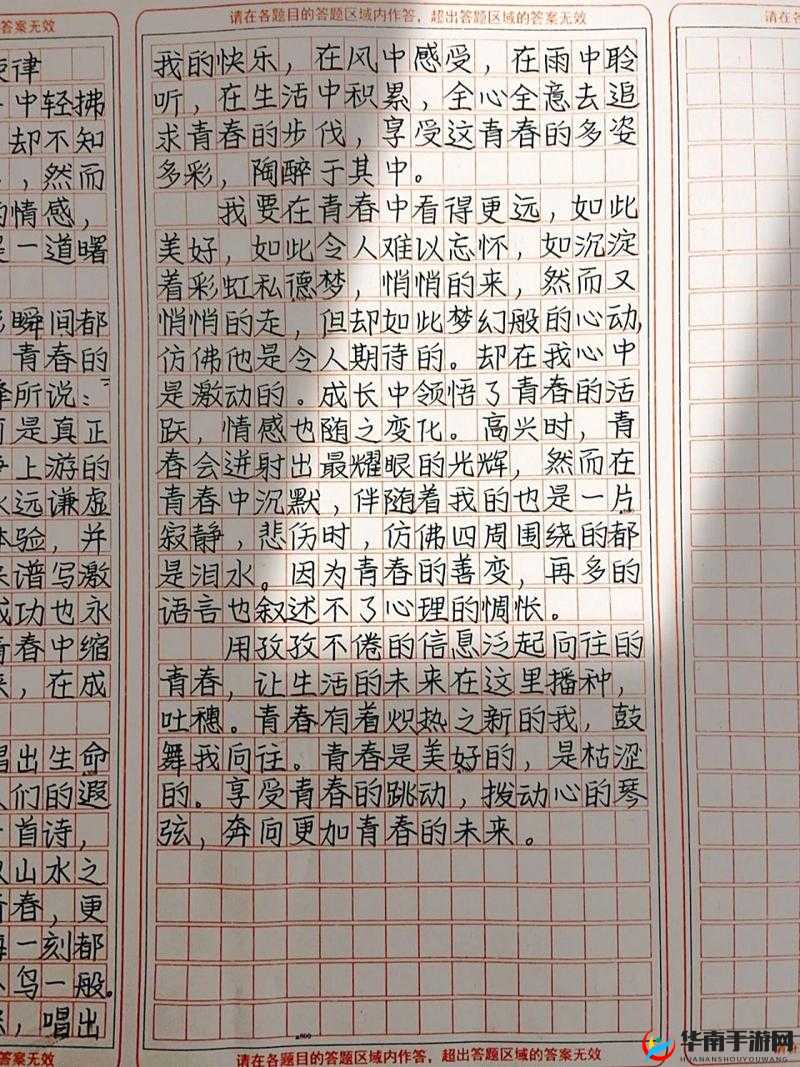 答案无效
旋律
中轻拂
却不知
,然而
的情感,
是一道曙
瞬间都
青春的
所说:
而是真正
争上游的
永远谦虚
体验,并
来谱写激
成功也永
青春中缩
来,在成
唱出生命
人们的遐
首诗,
以山水之
青春,更
每一刻都
小鸟一般。
,唱出
答案无效
请在各题目的答题区域内作答,超出答题区域的答案无效
我的快乐,在风中感受,在雨中聆
听,在生活中积累,全心全意去追
求青春的步伐,享受这青春的多姿
多彩,陶醉于其中。
我要在青春中看得更远,如此
美好,如此令人难以忘怀,如沉淀
着彩虹私德梦,悄悄的来,然而又
悄悄的走,但却如此梦幻般的心动,
仿佛他是令人期待的。却在我心中
是激动的。成长中领悟了青春的活
跃,情感也随之变化。高兴时,青
春会迸射出最耀眼的光辉,然而在
青春中沉默,伴随着我的也是一片
寂静,悲伤时,仿佛四周围绕的都
是泪水。因为青春的善变,再多的
语言也叙述不了心理的惆怅。
用孜孜不倦的信息泛起向往的
青春,让生活的未来在这里播种,
吐穗。青春有着炽热之新的我,鼓
舞我向往。青春是美好的,是枯涩
的。享受青春的跳动,拨动心的琴
弦,奔向更加青春的未来。
800
请在各题目的答题区域内作答,超出答题区域的答案无效
请在各
华南手游网
HUANANSHOUYOUWANG